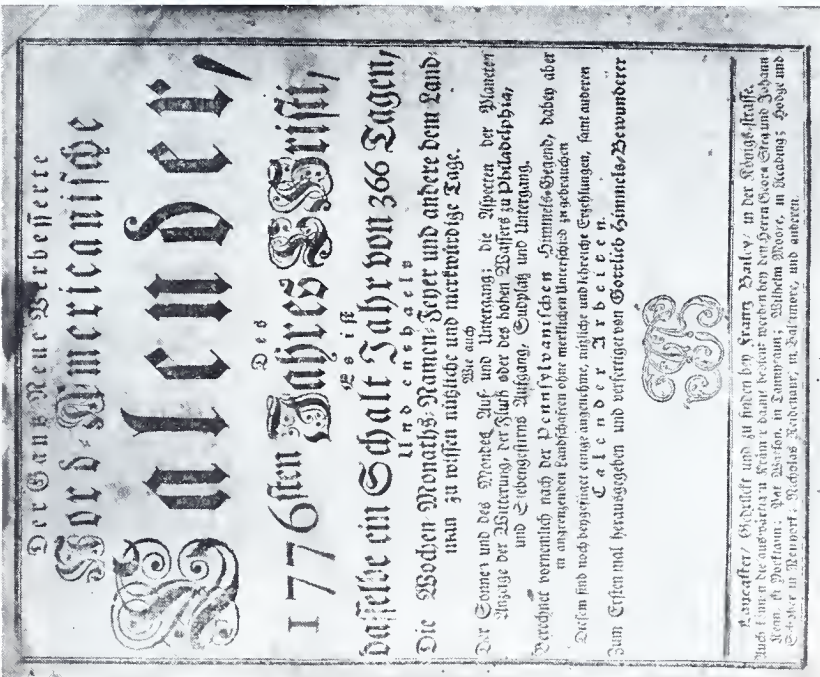 Der Gantz Neue Verbesserte
Nord-Americanische
Calender,
Des
1776sten Jahres Christi,
Es ist
Dasselbe ein Schalt Jahr von 366 Tagen,
Und enthaelt
Die Wochen- Monaths- Namen- Feyer und andere dem Land-
man zu wissen nützliche und merkwürdige Tage.
Wie auch
Der Sonnen und des Mondes Auf- und Untergang; die Aspecten der Planeten
Anzeige der Witterung, der Fluth oder des hohen Wassers zu Philadelphia,
und Siebengestirns Aufgang, Sudplatz und Untergang.
Berechnet vornemlich nach der Pennsylvanischen Himmels-Gegend, dabey aber
in angrenzenden Landschaften ohne merklichen Unterschied zu gebrauchen
Diesem sind noch beygefüget einige angenehme, nützliche und lehrreiche Erzehlungen, samt anderen
Calender Arbeiten.
Zum Ersten mal herausgegeben und verfertiget von Gottlieb Himmels-Bewunderer
Lancaster/ Gedruckt und zu finden bey Frantz Bailey/ in der Königs-strasse,
Auch können die auswärtigen Krämer damit bedient werden bey den Herrn Georg Steg und Johann
in Yorktaun; Pat Watson, in Wilhelm Moore, in Reading; Hodge und
Schober in Neuyork; Nicholas in Baltimore, und anderen.